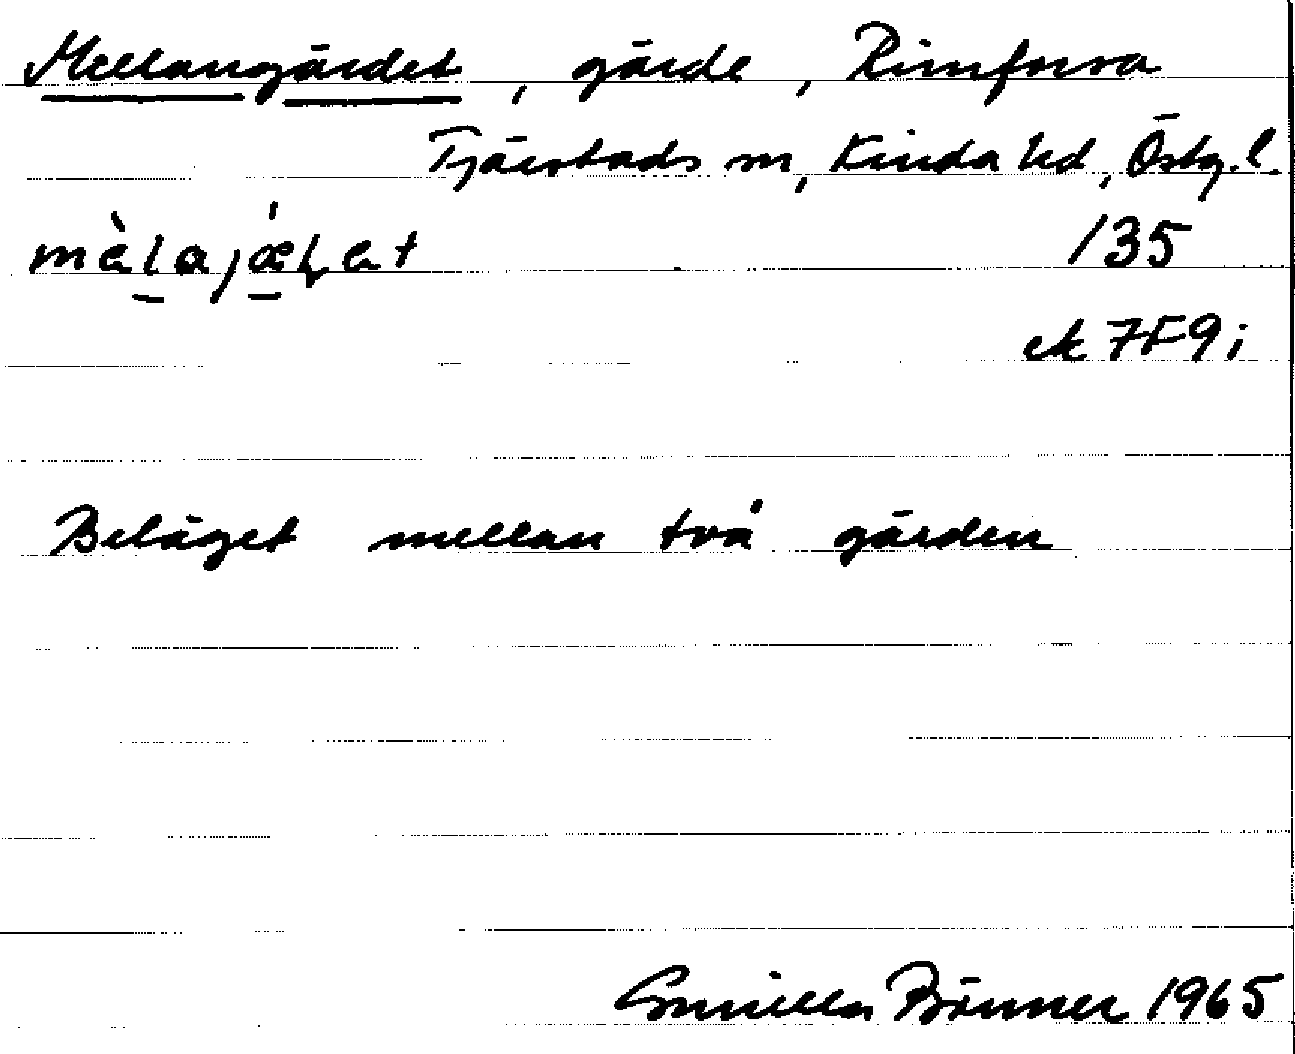 Mellangärdet, gärde, Rimforsa
Tjärstads sn, Kinda hd, Östg. l.
135
ek 7F9i
Beläget mellan två gärden
Gunilla Bönner 1965